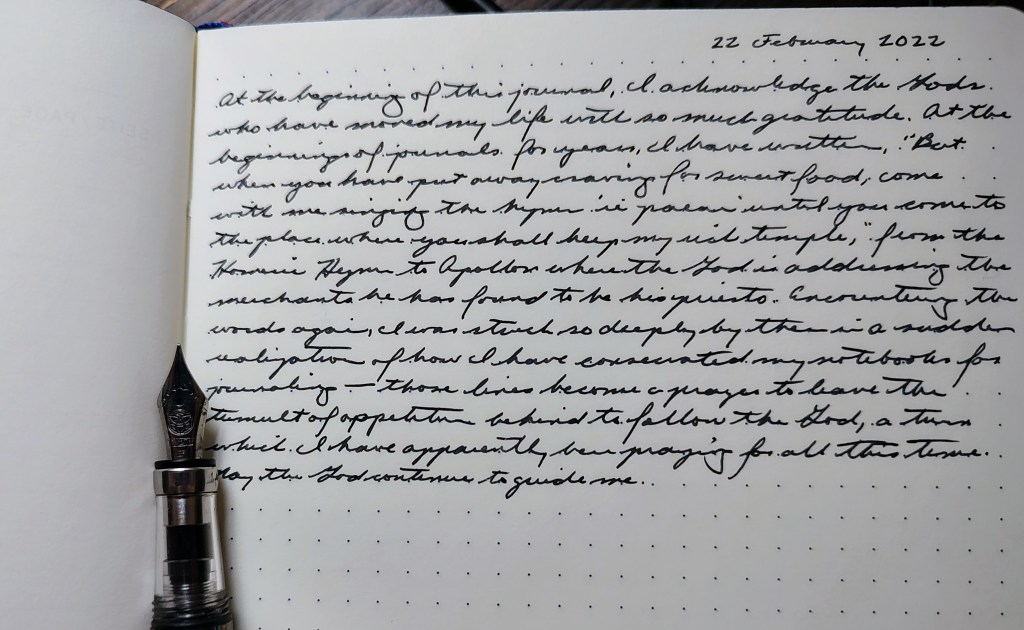 22 February 2022
At the beginning of this journal, I acknowledge the Gods
who have moved my life with so much gratitude. At the
beginnings of journals for years, I have written, "But
when you have put away craving for sweet food, come
with me singing the hymn 'ie paean' until you come to
the place where you shall keep my rich temple," from the
Homeric Hymn to Apollon where the God is addressing the
merchants he has found to be his priests. Encountering the
words again, I was struck so deeply by them in a sudden
realization of how I have consecrated my notebooks for
journaling — those lines become a prayer to leave the
tumult of appetite behind to follow the God, a turn
which I have apparently been praying for all this time.
May the God continue to guide me.